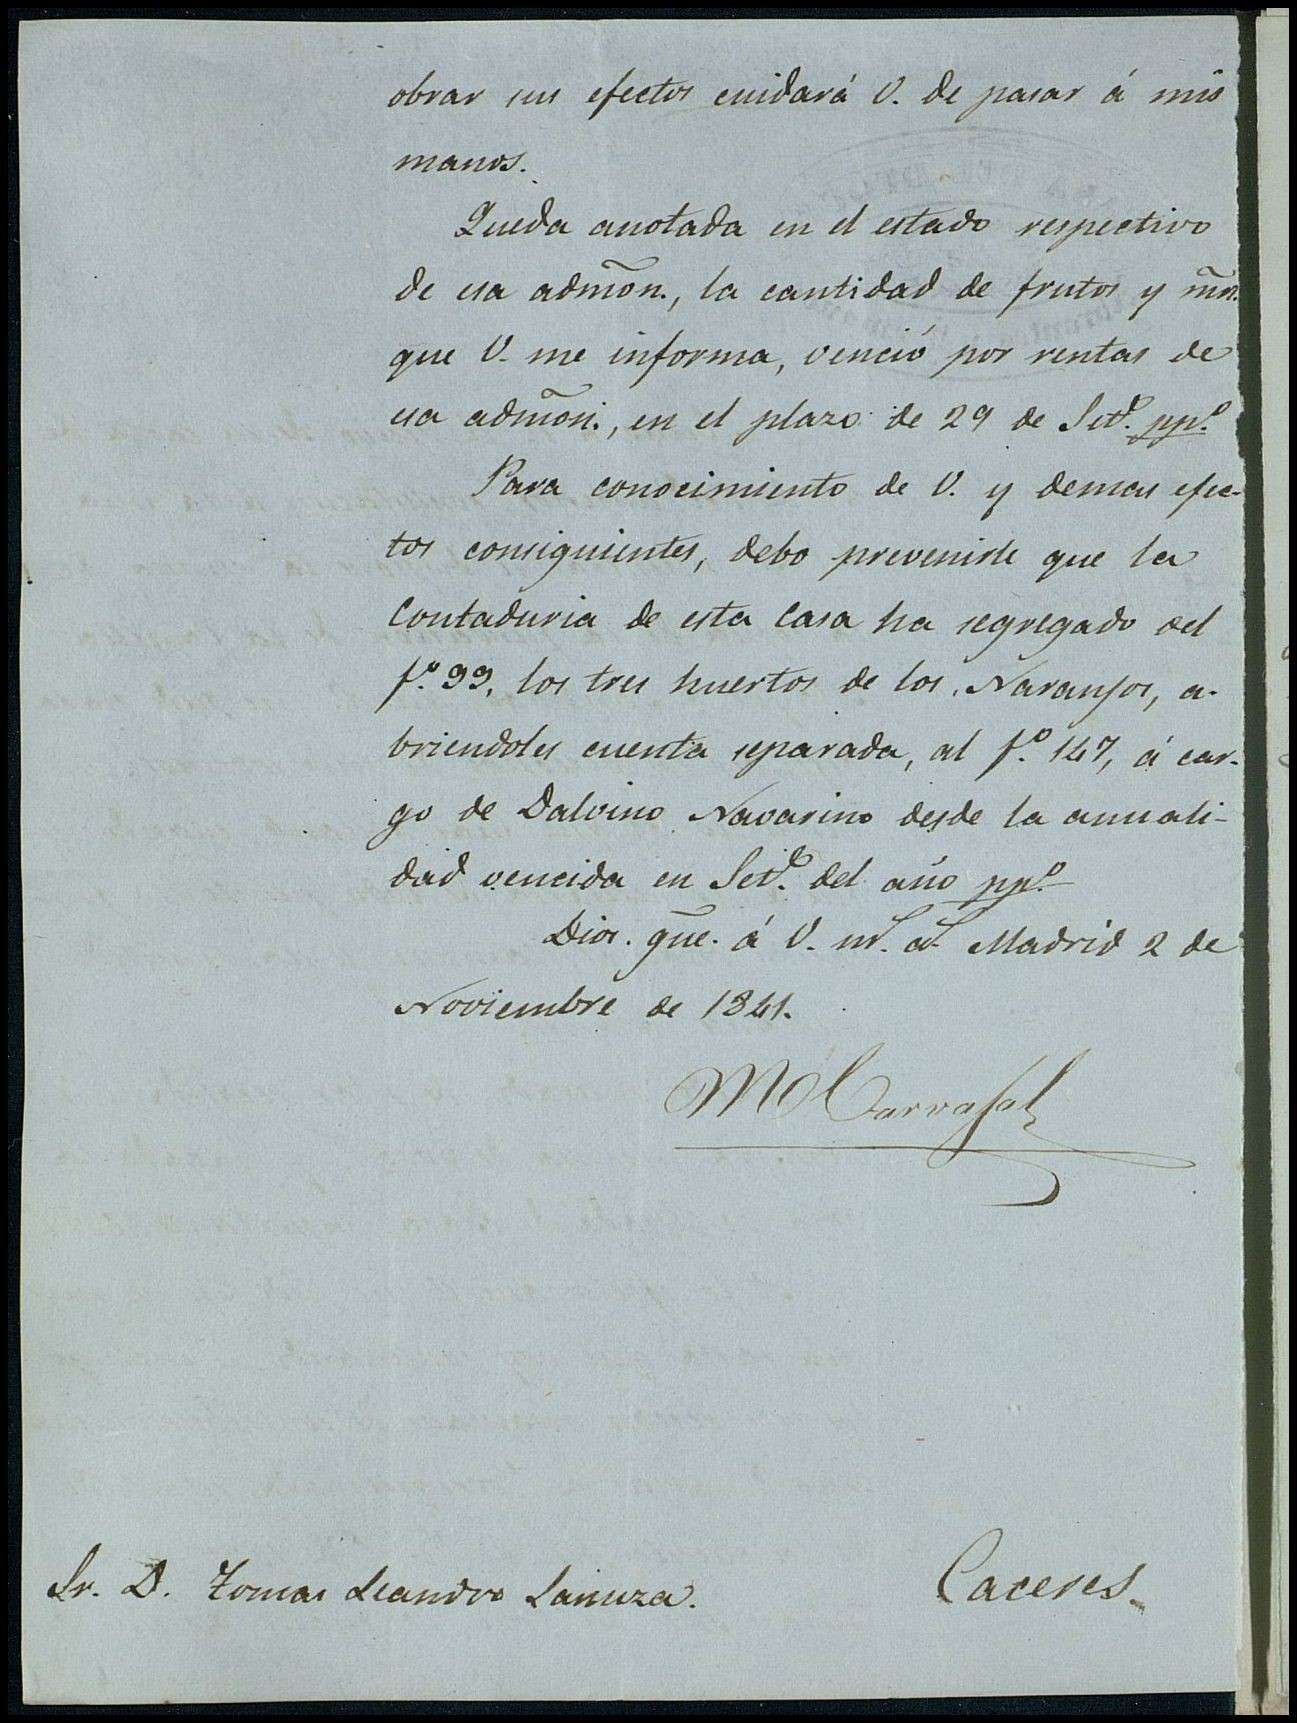 obrar sus efectos cuidará V. de pasar á mis
manos.
Queda anotada en el estado respectivo
de esa admõn., la cantidad de frutos y mrs.
que V. me informa, venció por rentas de
esa admõn., en el plazo de 29 de Set.e pp.o
Para conocimiento de V. y demas efec-
tos consiguientes, debo prevenirle que la
Contaduria de esta Casa ha segregado del
f.o 99, los tres huertos de los Naranjos, a-
briendoles cuenta separada, al f.o 147, á car-
go de Dalvino Navarino desde la anuali-
dad vencida en Set.e del año pp.o
Dios gue. á V. m.s a.s Madrid 2 de
Noviembre de 1841.
M Carvajal
Sr. D. Tomas Leandro Lanuza.
Caceres.